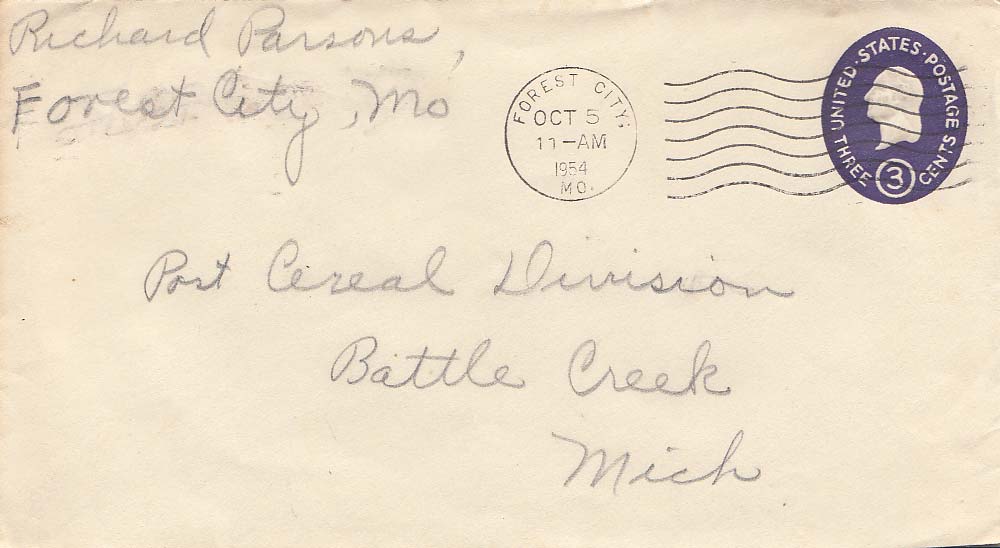 Richard Parsons,
Forest City, Mo
FOREST CITY,
OCT 5
11-AM
1954
MO.
UNITED·STATES·POSTAGE
THREE 3 CENTS
Post Cereal Division
Battle Creek
Mich